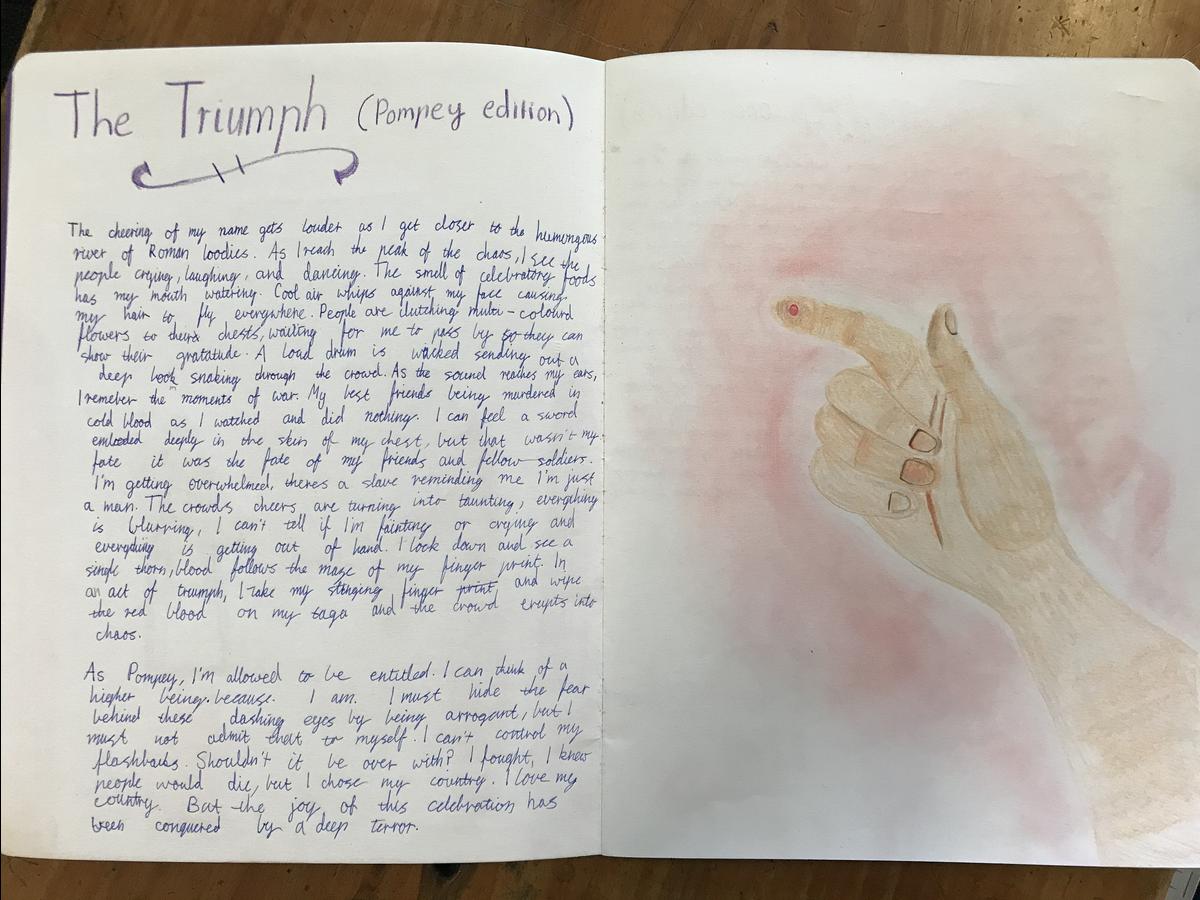 The Triumph (Pompey edition)
The cheering of my name gets louder as I get closer to the humongous
river of Roman loodies. As I reach the peak of the chaos, I see the
people crying, laughing, and dancing. The smell of celebratory foods
has my mouth watering. Cool air whips against my face causing
my hair to fly everywhere. People are clutching multi-coloured
flowers to their chests, waiting for me to pass by so they can
show their gratatude. A load drum is wacked sending out a
deep snaking through the crowd. As the sound reaches my ears,
I remeber the moments of war. My best friends being murdered in
cold blood as I watched and did nothing. I can feel a sword
embeded deeply in the skin of my chest, but that wasn't my
fate it was the fate of my friends and fellow soldiers.
I'm getting overwhelmed, theres a slave reminding me I'm just
a man. The crowds cheers are turning into taunting, everything
is blurring, I can't tell if I'm fainting or crying and
everything is getting out of hand. I look down and see a
single thorn, blood follows the maze of my finger print. In
an act of triumph, I take my stinging finger print and wipe
the red blood on my taga and the crowd erupts into
chaos.
As Pompey, I'm allowed to be entitled. I can think of a
higher being. because. I am. I must hide the fear
behind these dashing eyes by being arrogant, but I
must not admit that to myself. I can't control my
flashbacks. Shouldn't it be over with? I fought, I knew
people would die, but I chose my country. I love my
country. But the joy of this celebration has
been conquered by a deep terror.